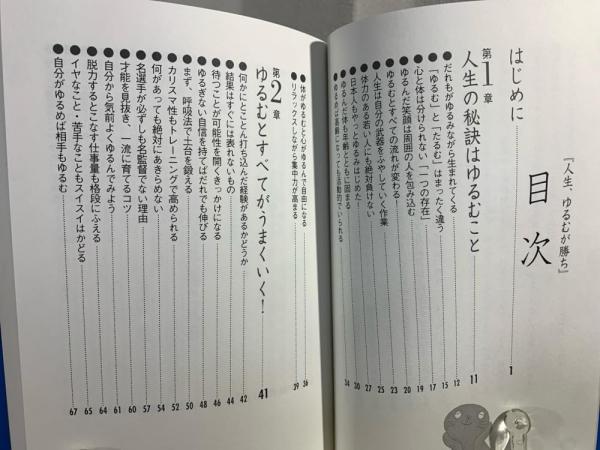 『人生、ゆるむが勝ち』
目次
はじめに 1
第1章
人生の秘訣はゆるむこと 11
●だれもがゆるみながら生まれてくる 12
●「ゆるむ」と「たるむ」はまったく違う 15
●心と体は分けられない「一つの存在」 17
●ゆるんだ笑顔は周囲の人を包み込む 19
●ゆるむとすべての流れが変わる 20
●人生は自分の武器をふやしていく作業 23
●体力のある若い人にも絶対負けない 25
●日本人もやっとゆるみはじめた! 27
●ゆるんだ体も年齢とともに固まる 30
●ゆるめば高齢になっても活動的でいられる 34
●体がゆるむと心がゆるんで自由になる 36
●リラックスしながら集中力が高まる 39
第2章
ゆるむとすべてがうまくいく! 41
●何かにとことん打ち込んだ経験があるかどうか 42
●結果はすぐには表れないもの 44
●待つことが可能性を開くきっかけになる 46
●ゆるぎない自信を持てばだれでも伸びる 48
●まず、呼吸法で土台を鍛える 50
●カリスマ性もトレーニングで高められる 52
●何があっても絶対にあきらめない 54
●名選手が必ずしも名監督でない理由 57
●才能を見抜き、一流に育てるコツ 60
●自分から気前よくゆるんでみよう 61
●脱力するとこなす仕事量も格段にふえる 64
●イヤなこと・苦手なこともスイスイはかどる 65
●自分がゆるめば相手もゆるむ 67